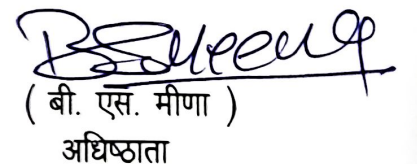 BSMeena
( बी. एस. मीणा )
अधिष्ठाता